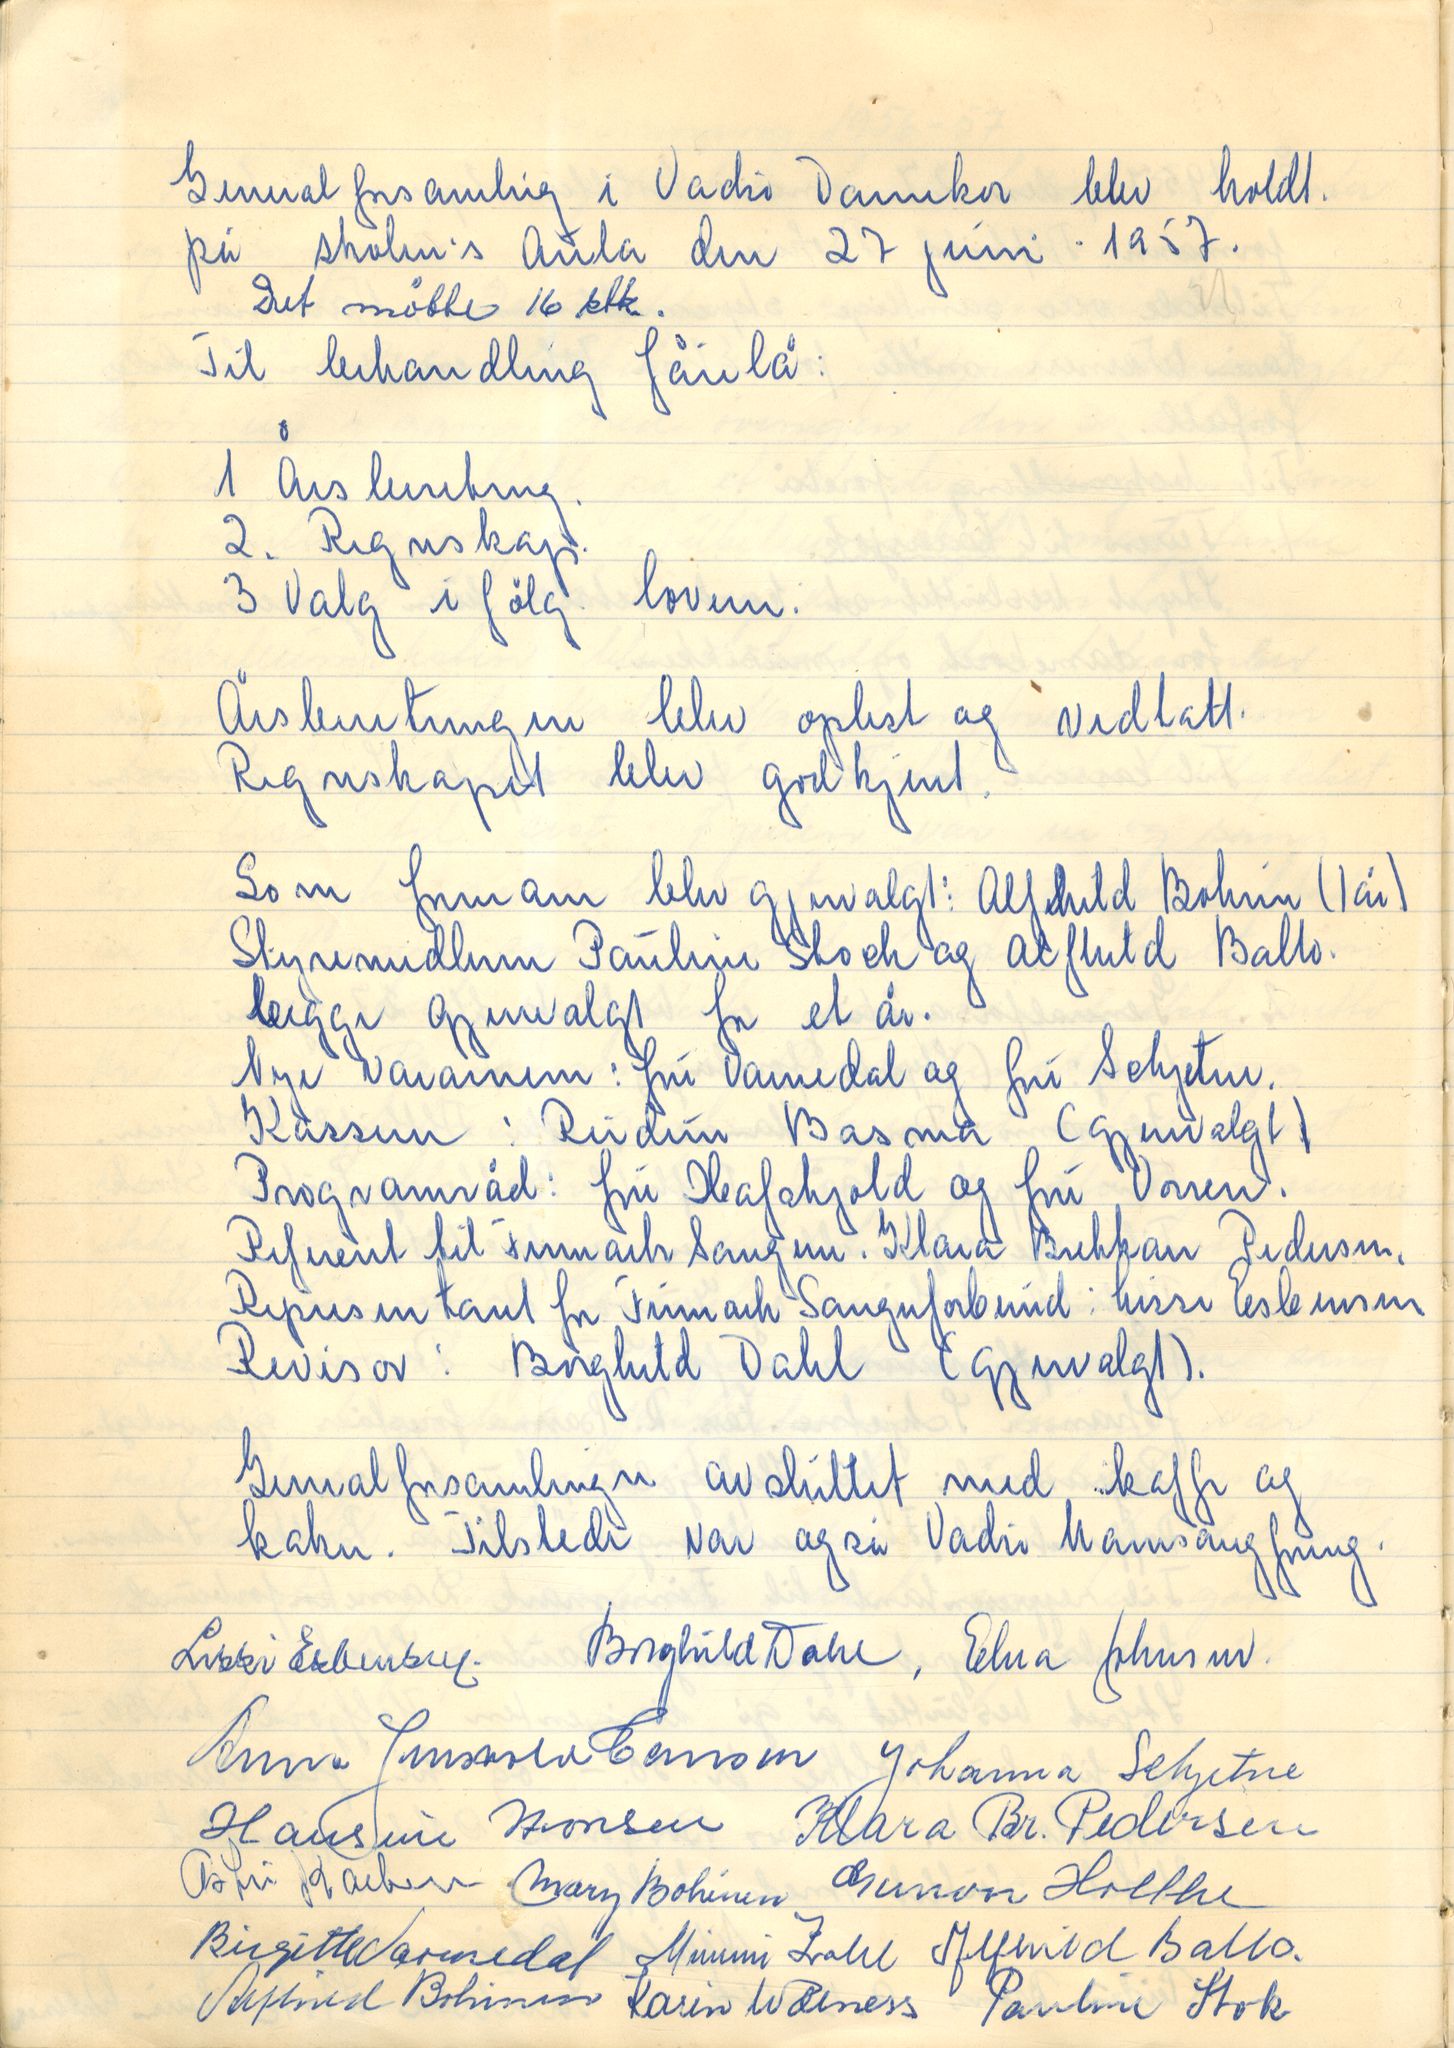 Generalforsamling i Vadsø Damekor blev holdt.
på skolen's Aula den 27 juni 1957.
Det møtte 16 stk.
Til behandling forelå:
1 Årsberetning.
2. Regnskap.
3 Valg i følg. loven.
Årsberetningen blev oplest og vedtatt.
Regnskapet blev godkjent.
Som formann blev gjenvalgt: Alfhild Bohinen (1 år)
Styremedlem Pauline Stock og Alfhild Ballo.
begge gjenvalgt for et år.
Nye Varamenn: fru Varmedal og fru Schjetne.
Kasserer: Reidun Basma (gjenvalgt)
Programråd: fru Skafskjold og fru Vorren.
Referent til Finmark Sangeren. Klara Brekkan Pedersen.
Representant for Finmark Sangerforbund: Lissi Esbensen
Revisor: Borghild Dahl (gjenvalgt).
Generalforsamlingen avsluttet med kaffe og
kaker. Tilstede var også Vadsø Mannsangforening.
Lissi Esbensen. Borghild Dahl, Edna Johnsen.
Anna Johanna Schjetne
Hansine Klara Br. Pedersen
Mary Bohinen Gunvor Holthe
Birgitte Varmedal Mimmi Alfhild Ballo.
Alfhild Bohinen Karin Wærness Pauline Stok